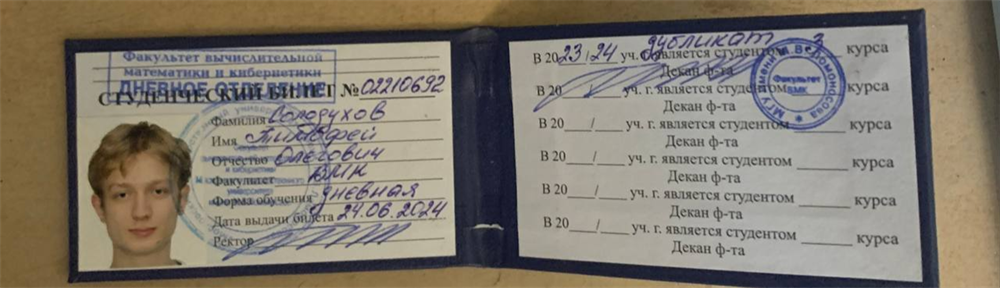 Факультет вычислительной
математики и кибернетики
ДНЕВНОЕ ОТДЕЛЕНИЕ
СТУДЕНЧЕСКИЙ БИЛЕТ № 02210692
Фамилия Солодухов
Имя Тимофей
Отчество Олегович
Факультет ВМК
Форма обучения дневная
Дата выдачи билета 24.06.2024
Ректор
дубликат
В 2023/24 уч. г. является студентом 3 курса
Декан ф-та
В 20___/___ уч. г. является студентом ______ курса
Декан ф-та
В 20___/___ уч. г. является студентом ______ курса
Декан ф-та
В 20___/___ уч. г. является студентом ______ курса
Декан ф-та
В 20___/___ уч. г. является студентом ______ курса
Декан ф-та
В 20___/___ уч. г. является студентом ______ курса
Декан ф-та
МГУ имени М.В. Ломоносова
Факультет
ВМК